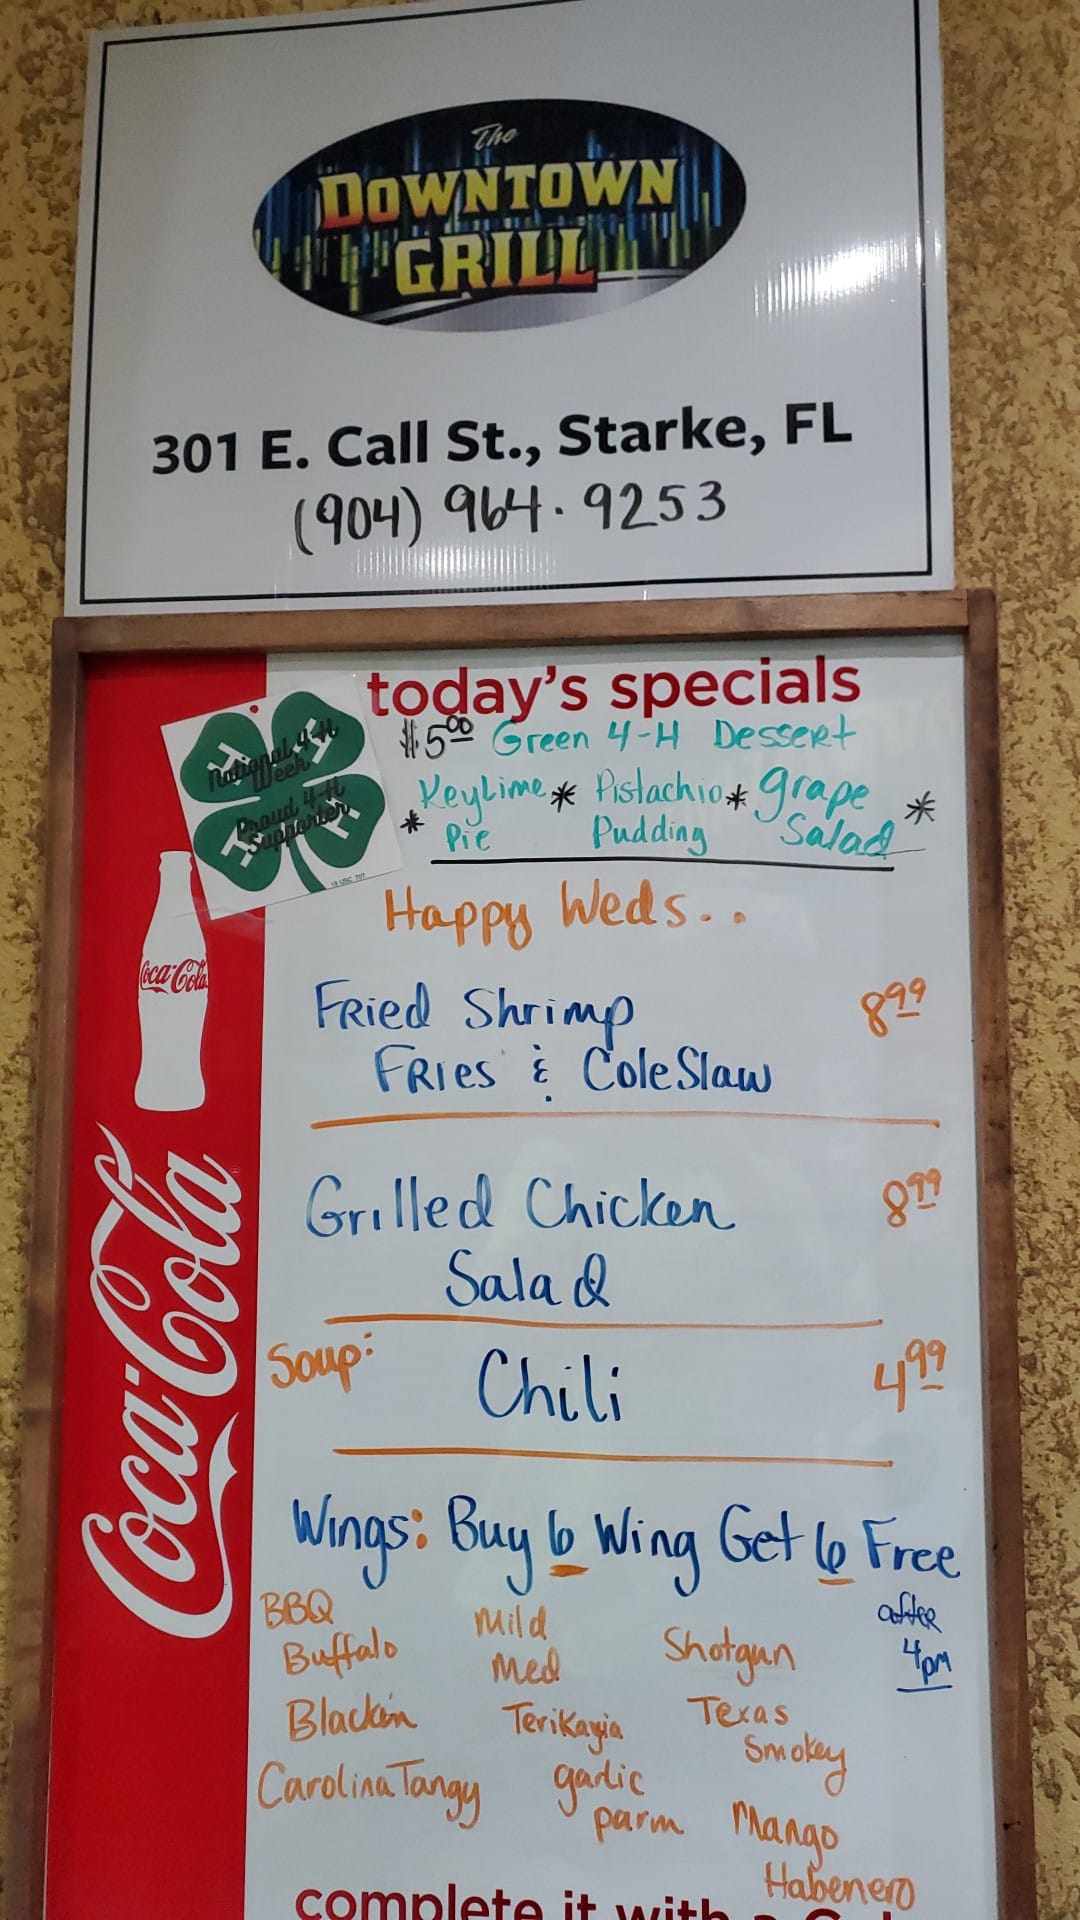 The
DOWNTOWN
GRILL
301 E. Call St., Starke, FL
(904) 964.9253
today's specials
$5.00 Green 4-H Dessert
* KeyLime Pie * Pistachio Pudding * grape Salad *
National 4-H
Week
Proud 4-H
Supporter
H H H H
18 USC 707
Happy Weds..
Fried Shrimp 8.99
Fries & ColeSlaw
Coca-Cola
Grilled Chicken 8.99
Salad
Soup: Chili 4.99
Coca-Cola
Wings: Buy 6 Wing Get 6 Free
after
4pm
BBQ
Buffalo
Blackin
Carolina Tangy
Mild
Med
Terikayia
garlic
parm
Shotgun
Texas
Smokey
Mango
Habenero
complete it with a